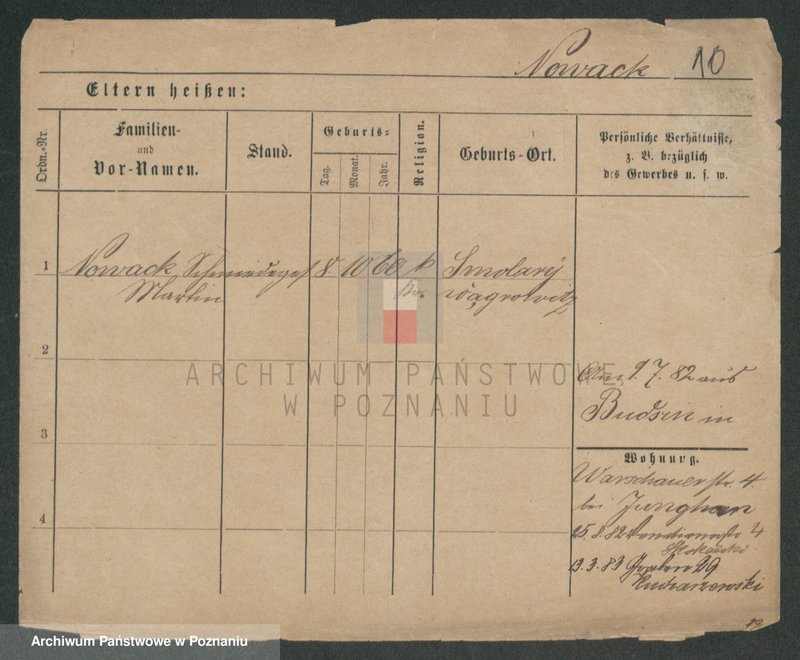 Nowack 10
Eltern heißen:
Ordn.-Nr.
Familien-
und
Vor-Namen.
Stand.
Geburts-
Tag.
Monat.
Jahr.
Religion.
Geburts-Ort.
Persönliche Verhältnisse,
z. B. bezüglich
des Gewerbes u. s. w.
1 Nowack Schmiedeges 8 10 60 k Smolary
Martin Kr. Wągrowitz
2
3
4
Am 9 7. 82 aus
Budsin in
Wohnung.
Warschauer str. 4
bei Junghan
25. 8. 82 4
13. 3. 83 29
ARCHIWUM PAŃSTWOWE
W POZNANIU
Archiwum Państwowe w Poznaniu